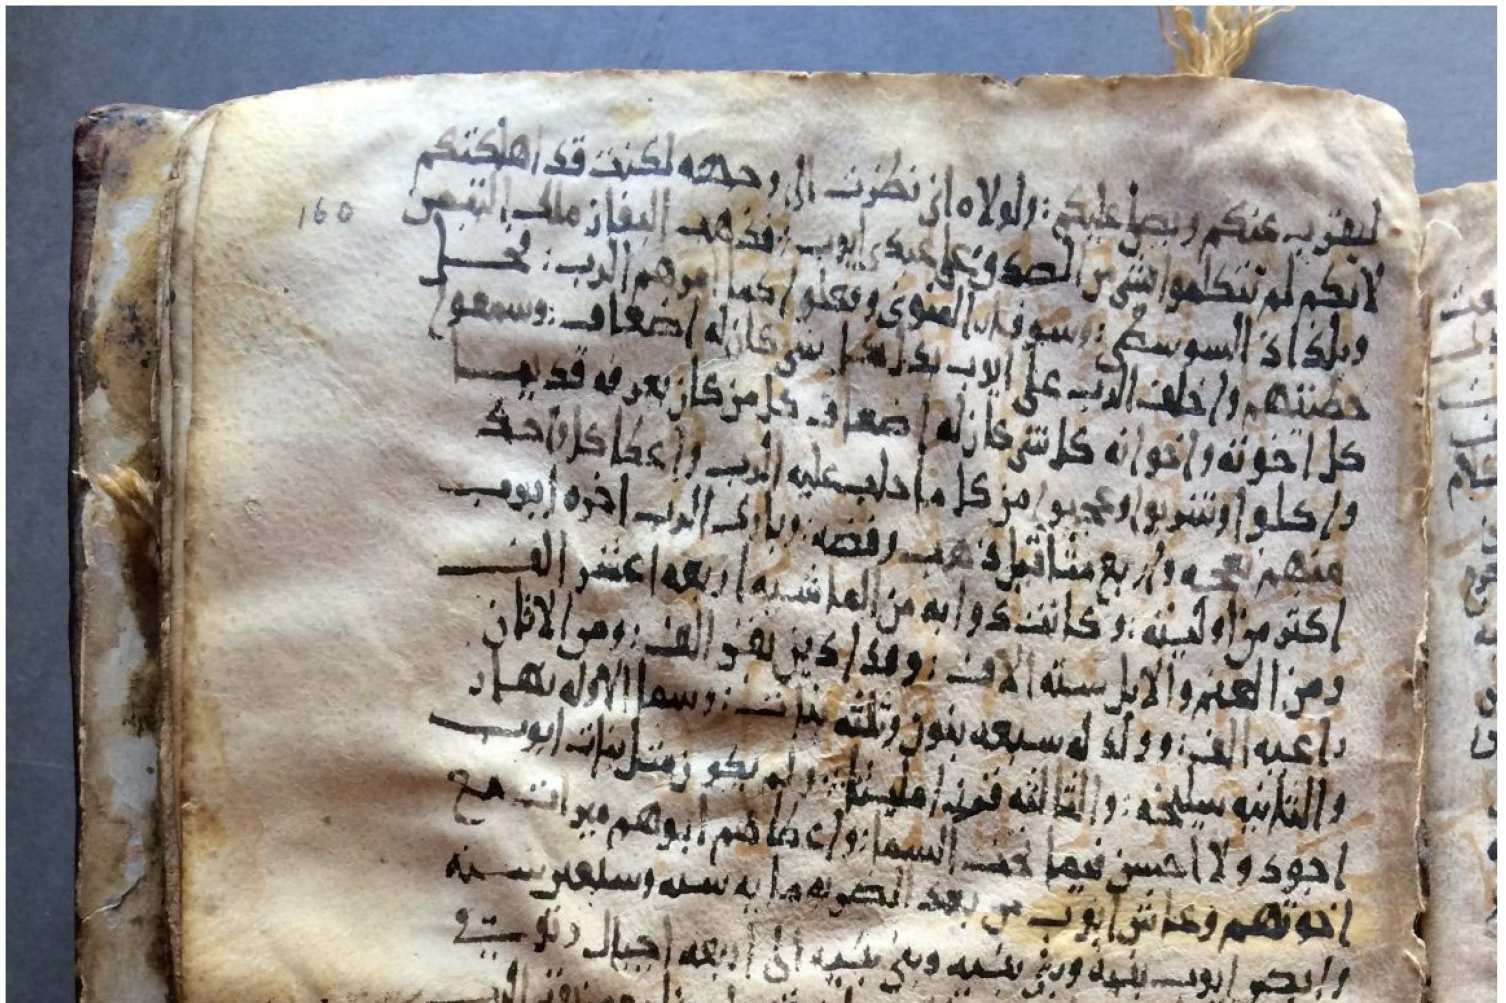 ليقرب عنكم ويصل عليكم : ولولاه اني نظرت الى وجهه لكنت قد اهلكتكم
لانكم لم تتكلموا شي من الصدق على عبدي ايوب : فذهب اليفاز ملك التيمن
وبلداد السوسطي : وسوفار المنوي وفعلوا كما امرهم الرب : فحل
خطيتهم واخلف الرب على ايوب بدل كل شي كان له اضعاف : وسمعوا
كل اخوته واخواته كل شي كان له اضعاف كل من كان يعرفه قديما
واكلوا وشربوا وعجبوا من كل ما جلب عليه الرب واعطا كل واحد
منهم نعجه واربع مثاقيل ذهب وفضه : وبارك الرب اخره ايوب
اكثر من اوليته : وكانت دوابه من الماشيه اربعه اعشر الف
ومن الغنم والابل سته الاف : وفدادين بقر الف : ومن الاتان
راعيه الف : وولد له سبعه بنون وثلثه بنات : وسما الاوله نهار
والثانيه سليخه : والثالثه قرن املتيا : ولم يكون مثل بنات ايوب
اجود ولا احسن فيما تحت السما : واعطاهم ابوهم ميراث مع
اخوتهم وعاش ايوب من بعد الضربه مايه سنه وسبعين سنه
وابصر ايوب بنيه وبني بنيه وبني بنيه الى اربعه اجيال وتوفي
160